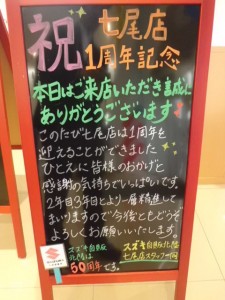 祝 七尾店
1周年記念
本日はご来店いただき誠に
ありがとうございます
このたび七尾店は1周年を
迎えることができました
ひとえに皆様のおかげと
感謝の気持ちでいっぱいです。
2年目3年目とより一層精進して
まいりますので今後ともどうぞ
よろしくお願いいたします。
スズキ自販北陸
七尾店スタッフ一同
スズキ自販
北陸は
50周年です。